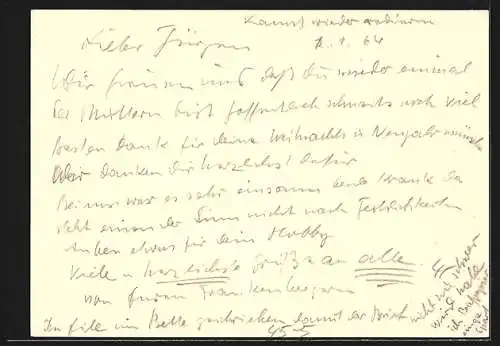 Kannst wieder radieren
12.1.64
Lieber Jürgen
Wir freuen uns daß du wieder einmal
bei Muttern bist hoffentlich schmeckts noch Viel
besten Dank für deine Weihnachts u Neujahrswünsche
Wir danken dir herzlichst dafür
Bei uns war es sehr einsam denn krank da
steht einem der Sinn nicht nach Festlichkeiten
Anbei etwas für dein Hobby
Viele u herzlichste Grüße an alle.
von Euren Frankenbergern
In Eile im Bette geschrieben damit der Brief
nicht zu schwer
wird habe
ich
einige